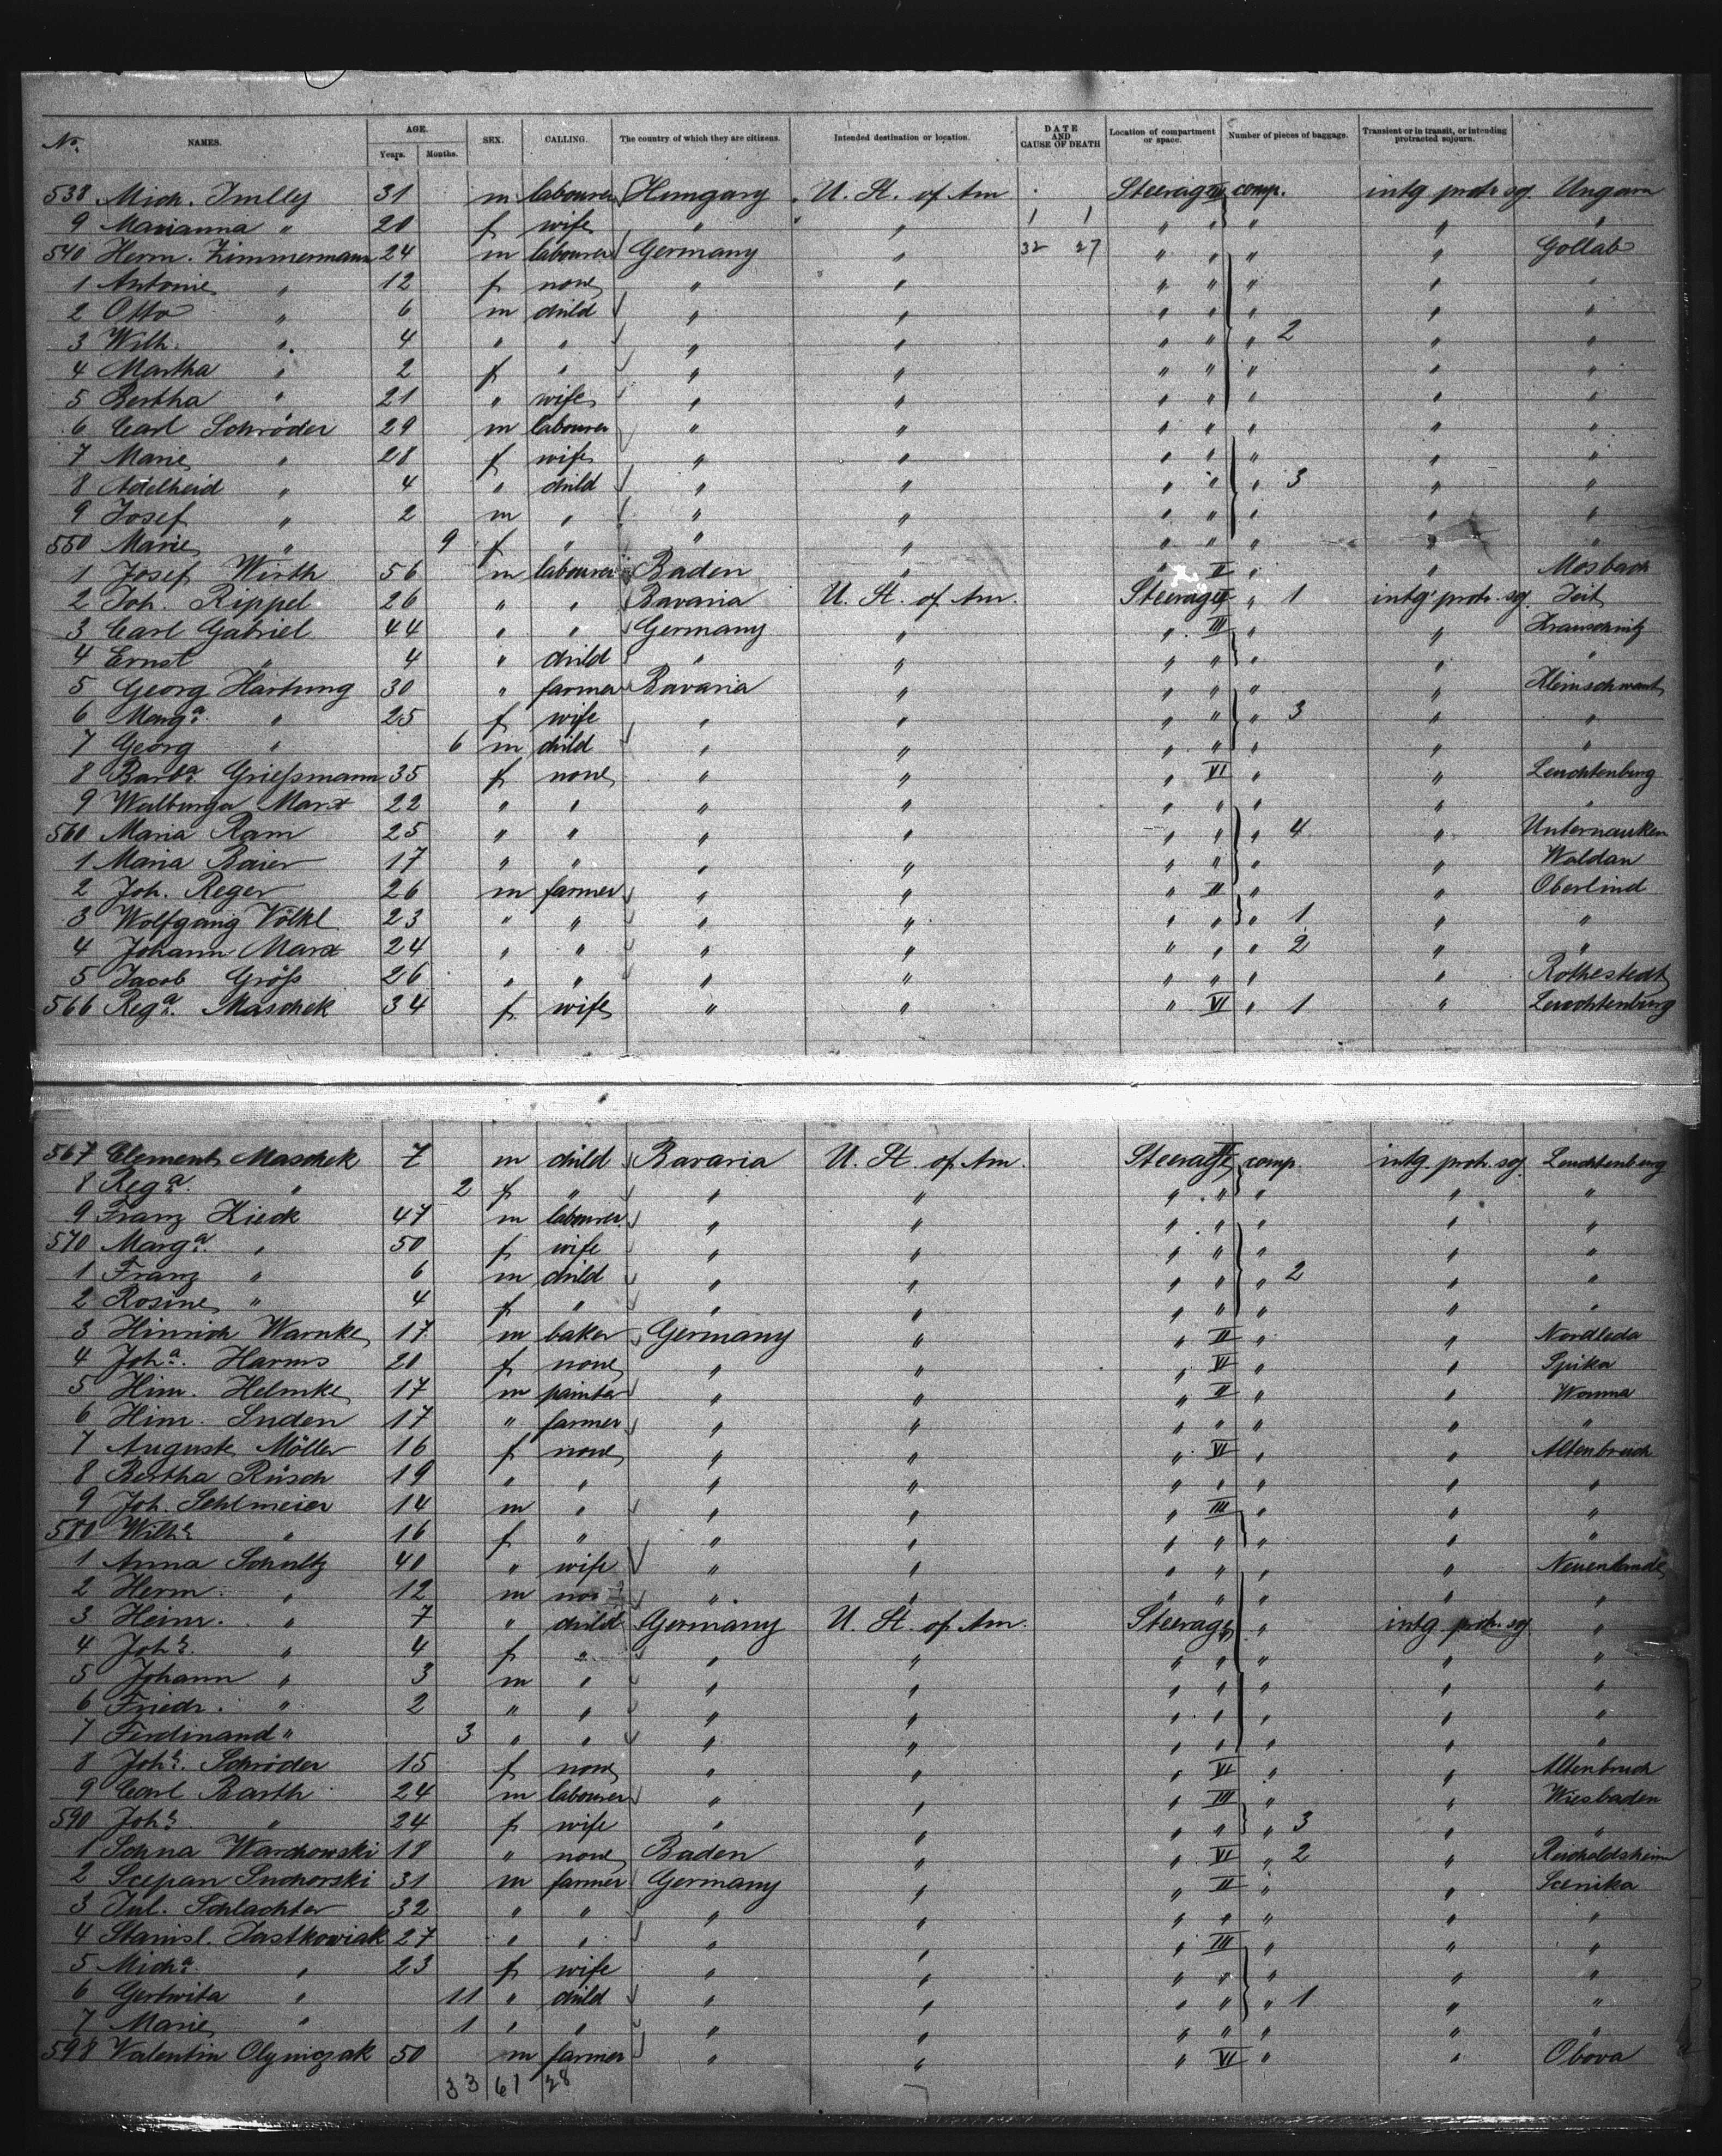 No. NAMES. AGE. Years. Months. SEX. CALLING. The country of which they are citizens. Intended destination or location. DATE AND CAUSE OF DEATH Location of compartment or space. Number of pieces of baggage. Transient or in transit, or intending protracted sojourn.
538 Mich. Imlley 31 m labourer Hungary U. St. of Am Steerage comp. intg protr soj. Ungarn
9 Marianna " 20 f wife " " 1 1 " " " " "
540 Herm. Zimmermann 24 m labourer Germany " 32 27 " " " " Gollab
1 Antonie " 12 f none " " " " " " "
2 Otto " 6 m child " " " " " " "
3 Wilh. " 4 " " " " " " " 2 " "
4 Martha " 2 f " " " " " " " "
5 Bertha " 21 " wife " " " " " " "
6 Carl Schröder 29 m labourer " " " " " " "
7 Marie " 28 f wife " " " " " " "
8 Adelheid " 4 " child " " " " " 3 " "
9 Josef " 2 m " " " " " " " "
550 Marie " 9 f " " " " " " " "
1 Josef Wirth 56 m labourer Baden " " II " " Mosbach
2 Joh. Rippel 26 " " Bavaria U. St. of Am. Steerage " 1 intg protr. soj
3 Carl Gabriel 44 " " Germany " " III " " Krauschnitz
4 Ernst " 4 " child " " " " " " "
5 Georg Hartung 30 " farmer Bavaria " " " " "
6 Marga. " 25 f wife " " " " " 3 " "
7 Georg " 6 m child " " " " " " "
8 Barba. Grießmann 35 f none " " " VI " " Leuchtenburg
9 Walburga Marx 22 " " " " " " " " "
560 Maria Ram 25 " " " " " " " 4 "
1 Maria Baier 17 " " " " " " " " Waldau
2 Joh. Reger 26 m farmer " " " II " " Oberlind
3 Wolfgang Völkl 23 " " " " " " " 1 " "
4 Johann Marx 24 " " " " " " " 2 " "
5 Jacob Größ 26 " " " " " " " " Rothestedt
566 Rega. Maschek 34 f wife " " " VI " 1 " Leuchtenburg
567 Clement Maschek 7 m child Bavaria U. St. of Am. Steerage comp. intg protr. soj Leuchtenburg
8 Rega. " 2 f " " " " " " " "
9 Franz Kieck 47 m labourer " " " " " " "
570 Marga. " 50 f wife " " " " " " "
1 Franz " 6 m child " " " " " 2 " "
2 Rosine " 4 f " " " " " " " "
3 Hinrich Warnke 17 m baker Germany " " II " " Nordleda
4 Joha. Harms 20 f none " " " VI " " Spika
5 Hinr. Helmke 17 m painter " " " II " " Wanna
6 Hinr. Suden 17 " farmer " " " " " " "
7 Auguste Möller 16 f none " " " VI " " Altenbruch
8 Bertha Rüsch 19 " " " " " " " " "
9 Joh. Sehlmeier 14 m " " " " III " " "
580 Wilhe. " 16 f " " " " " " " "
1 Anna Schultz 40 " wife " " " " " " Neuenlande
2 Herm. " 12 m " " " " " " "
3 Heinr. " 7 " child Germany U. St. of Am. Steerage " intg protr. soj "
4 Johe. " 4 f " " " " " " " "
5 Johann " 3 m " " " " " " " "
6 Friedr. " 2 " " " " " " " " "
7 Ferdinand " 3 " " " " " " " " "
8 Johe. Schröder 15 f none " " " VI " " Altenbruch
9 Carl Barth 24 m labourer " " " III " " Wiesbaden
590 Johe. " 24 f wife " " " " " 3 " "
1 Schna Warchowski 18 " none Baden " " VI " 2 " Reicholdsheim
2 Scepan Suchorski 31 m farmer Germany " " II " " Scenika
3 Jul. Schlachter 32 " " " " " " " " "
4 Stanisl. Jastkowiak 27 " " " " " III " " "
5 Micha. " 23 f wife " " " " " " "
6 Gertwita " 11 " child " " " " " 1 " "
7 Marie " 1 " " " " " " " " "
598 Valentin Olyniczak 50 m farmer " " " VI " " Obova
33 61 28